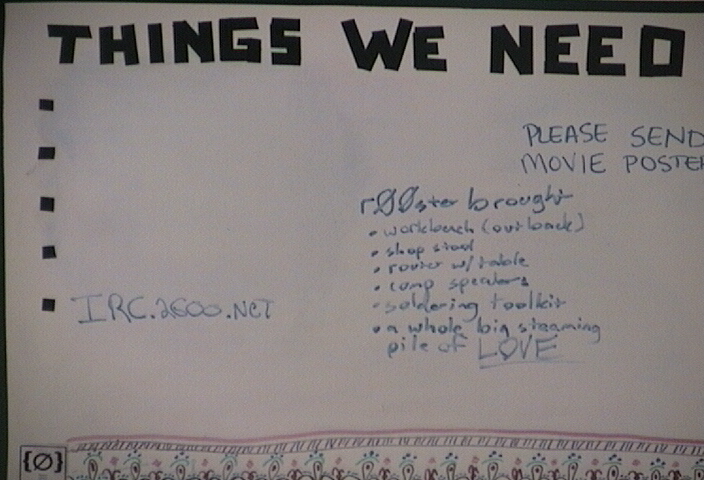 THINGS WE NEED
PLEASE SEND
MOVIE POSTER
rØØster brought
• workbench (out back)
• shop stool
• router w/ table
• comp speakers
• soldering toolkit
• a whole big steaming
pile of LOVE
IRC.2600.NET
{Ø}